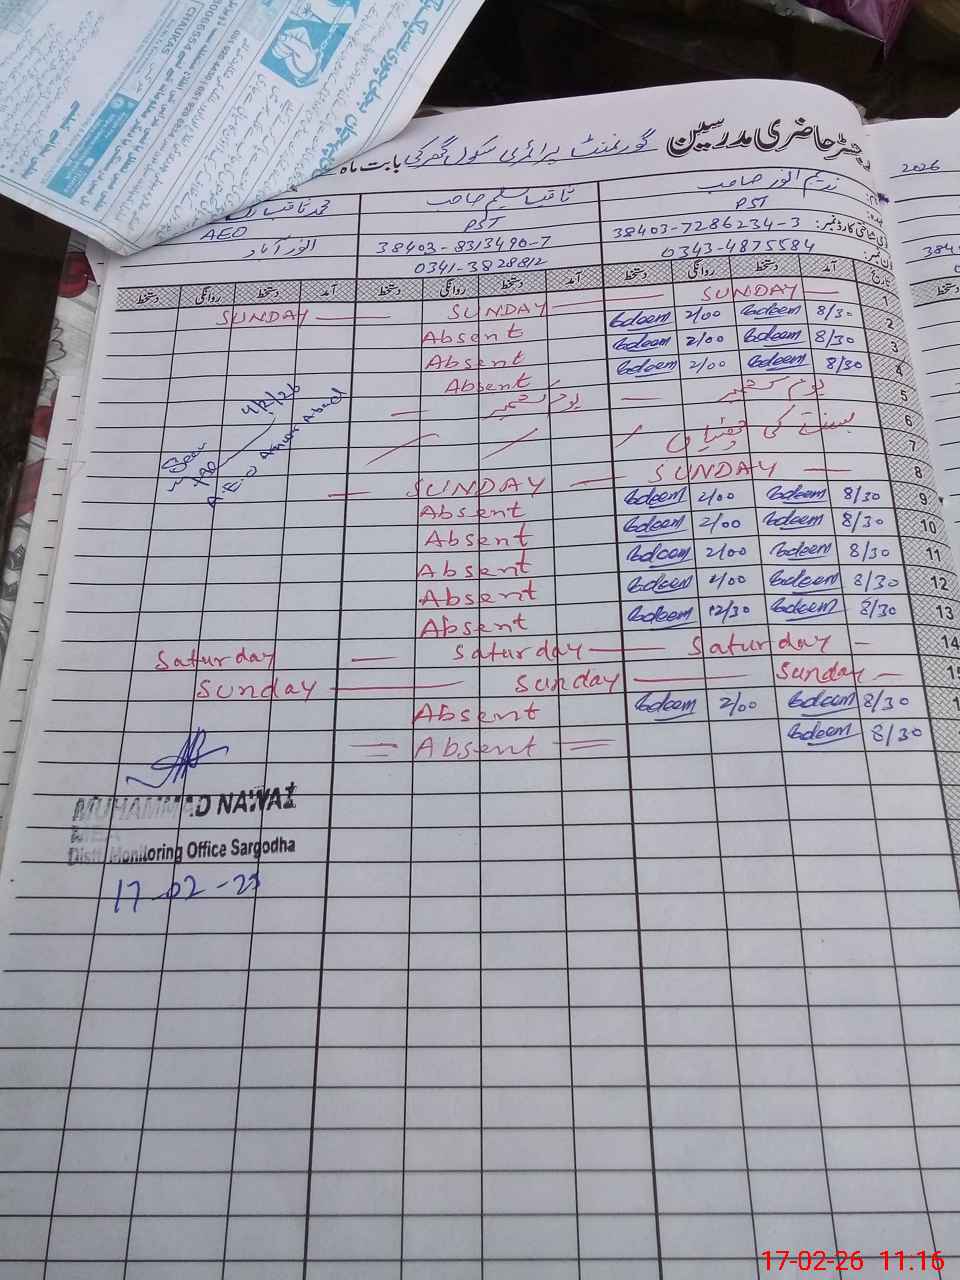 رجسٹر حاضری مدرسین گورنمنٹ پرائمری سکول بابت ماہ
2026
ندیم انور صاحب
ثاقب سلیم صاحب
PST
PST
AEO
38403-7286234-3
38403-8313490-7
انور آباد
0343-4875584
0341-3828812
تاریخ آمد دستخط روانگی دستخط آمد دستخط روانگی دستخط آمد دستخط روانگی دستخط
1 SUNDAY — SUNDAY — SUNDAY
2 8/30 2/00 Absent
3 8/30 2/00 Absent
4 8/30 2/00 Absent
5 یوم کشمیر — یوم کشمیر —
6 بسنت کی چھٹیاں
7
Seen
4/2/26
A.E.O Anwar Abad
8 — SUNDAY — SUNDAY —
9 8/30 2/00 Absent
10 8/30 2/00 Absent
11 8/30 2/00 Absent
12 8/30 2/00 Absent
13 8/30 12/30 Absent
14 — Saturday — Saturday — Saturday
15 — Sunday — Sunday — Sunday
8/30 2/00 Absent
8/30 = Absent =
MUHAMMAD NAWAZ
MEA
Distt: Monitoring Office Sargodha
17-02-26
17-02-26 11.16